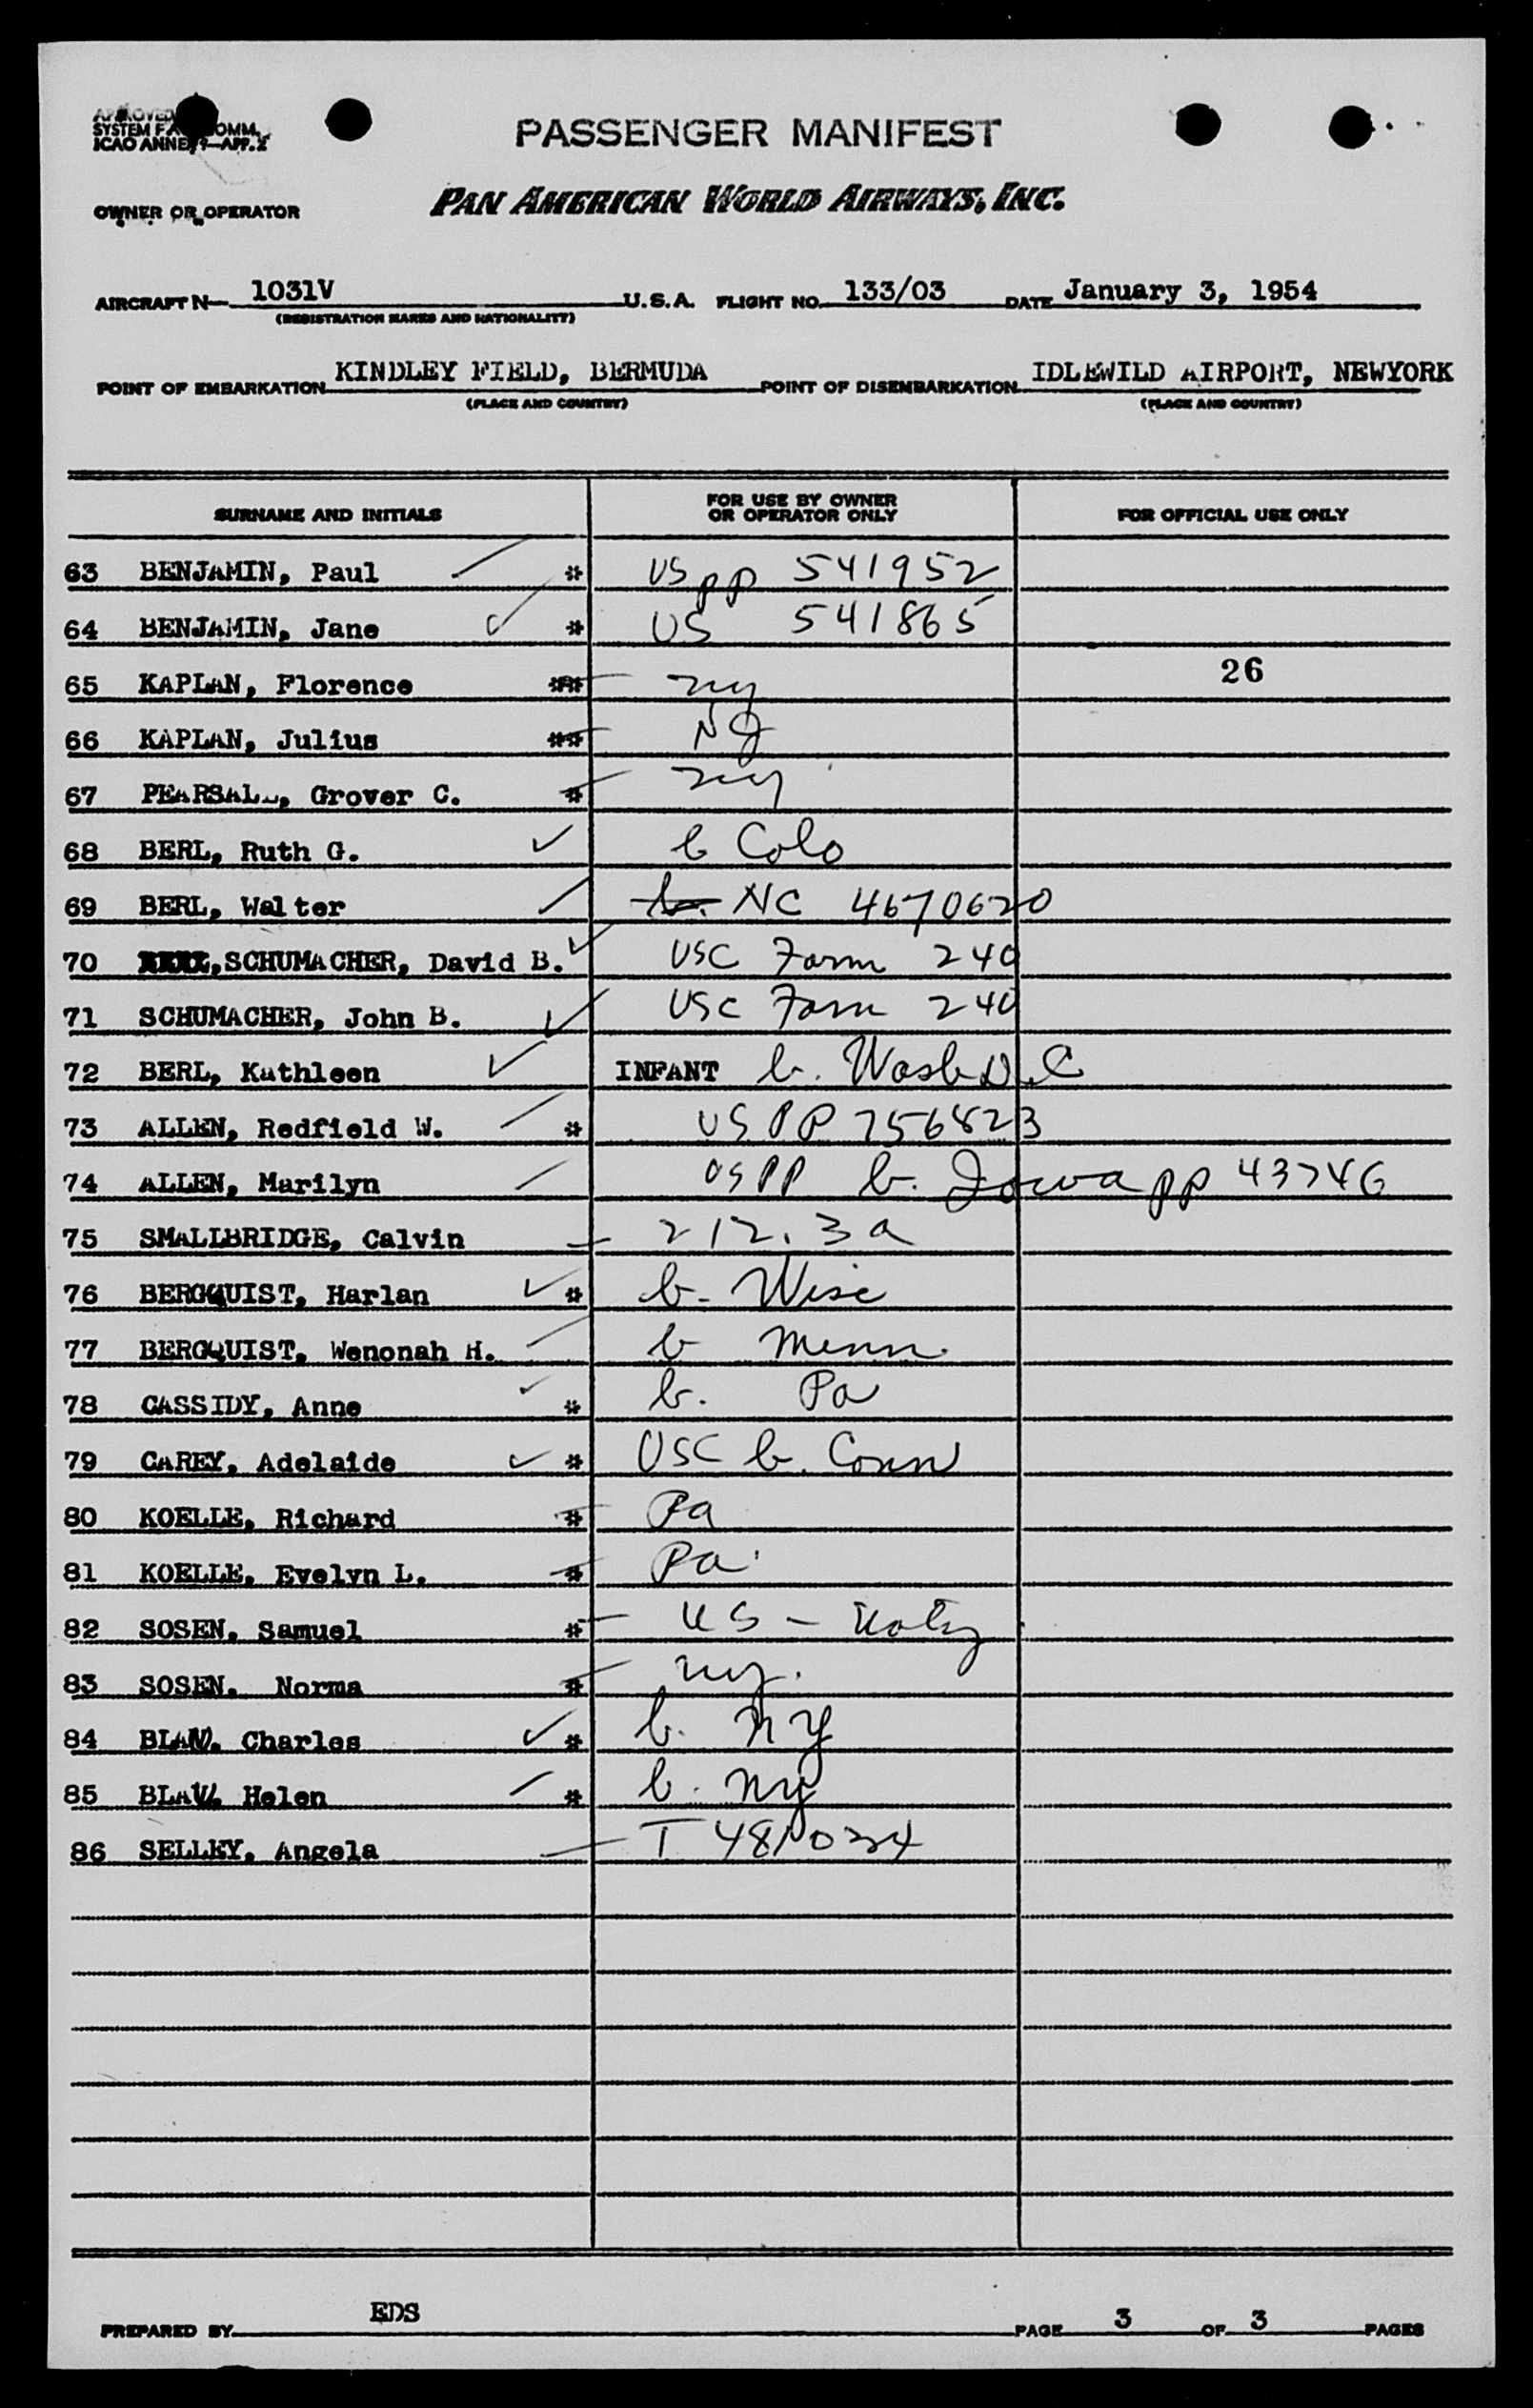 APPROVED
SYSTEM FAL COMM.
ICAO ANNEX 9—APP. 2
PASSENGER MANIFEST
OWNER OR OPERATOR PAN AMERICAN WORLD AIRWAYS, INC.
AIRCRAFT N— 1031V U.S.A. FLIGHT NO. 133/03 DATE January 3, 1954
(REGISTRATION MARKS AND NATIONALITY)
POINT OF EMBARKATION KINDLEY FIELD, BERMUDA POINT OF DISEMBARKATION IDLEWILD AIRPORT, NEWYORK
(PLACE AND COUNTRY) (PLACE AND COUNTRY)
SURNAME AND INITIALS FOR USE BY OWNER OR OPERATOR ONLY FOR OFFICIAL USE ONLY
63 BENJAMIN, Paul * US pp 541952
64 BENJAMIN, Jane * US 541865
65 KAPLAN, Florence ** ny 26
66 KAPLAN, Julius ** NJ
67 PEARSALL, Grover C. * ny
68 BERL, Ruth G. b Colo
69 BERL, Walter NC 4670620
70 SCHUMACHER, David B. USC Form 240
71 SCHUMACHER, John B. USC Form 240
72 BERL, Kathleen INFANT b. Wash D.C
73 ALLEN, Redfield W. * US PP 756823
74 ALLEN, Marilyn US PP b. Iowa pp 43746
75 SMALLBRIDGE, Calvin 212.3a
76 BERGQUIST, Harlan * b. Wisc
77 BERGQUIST, Wenonah H. b Minn.
78 CASSIDY, Anne * b. Pa
79 CAREY, Adelaide * USC b. Conn
80 KOELLE, Richard * Pa
81 KOELLE, Evelyn L. * Pa
82 SOSEN, Samuel * US -
83 SOSEN, Norma * ny.
84 BLAU, Charles * b. ny
85 BLAU, Helen * b. ny
86 SELLEY, Angela
PREPARED BY EDS PAGE 3 OF 3 PAGES